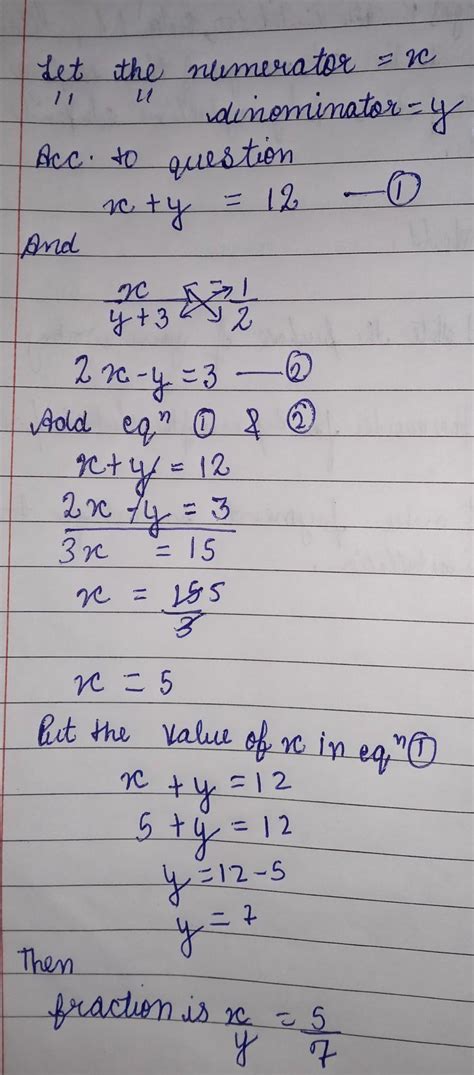 Let the numerator = x
" " dinominator = y
Acc. to question
x + y = 12 — ①
And
x/y + 3 = 1/2
2x - y = 3 — ②
Add eqⁿ ① & ②
x + y = 12
2x - y = 3
3x = 15
x = 15/3 5
x = 5
Put the value of x in eqⁿ ①
x + y = 12
5 + y = 12
y = 12 - 5
y = 7
Then
fraction is x/y = 5/7